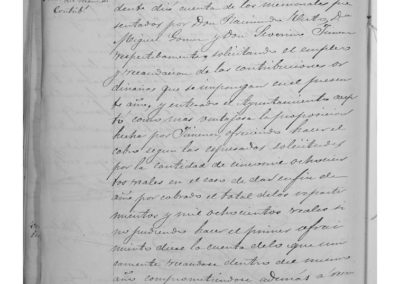 Contrib.s
dente dió cuenta de los memoriales pre
sentados por Don
Miguel Gomez y Don Severino Jimenez
respectibamente, solicitando el empleo
y recaudacion de las contribuciones or
dinarias que se impongan en el presen
te año, y enterado el Ayuntamiento acep
tó como mas ventajosa la proposicion
hecha por Jimenez ofreciendo hacer el
cobro segun las espresadas solicitudes
por la cantidad de ochocien
tos reales en el caso de dar en fin de
año por cobrado el total de los repartí
mientos y mil ochocientos reales si
no pudiendo hacer el primer ofreci
miento diese la cuenta de lo que
camente recaudase dentro del mismo
año comprometiendose además a